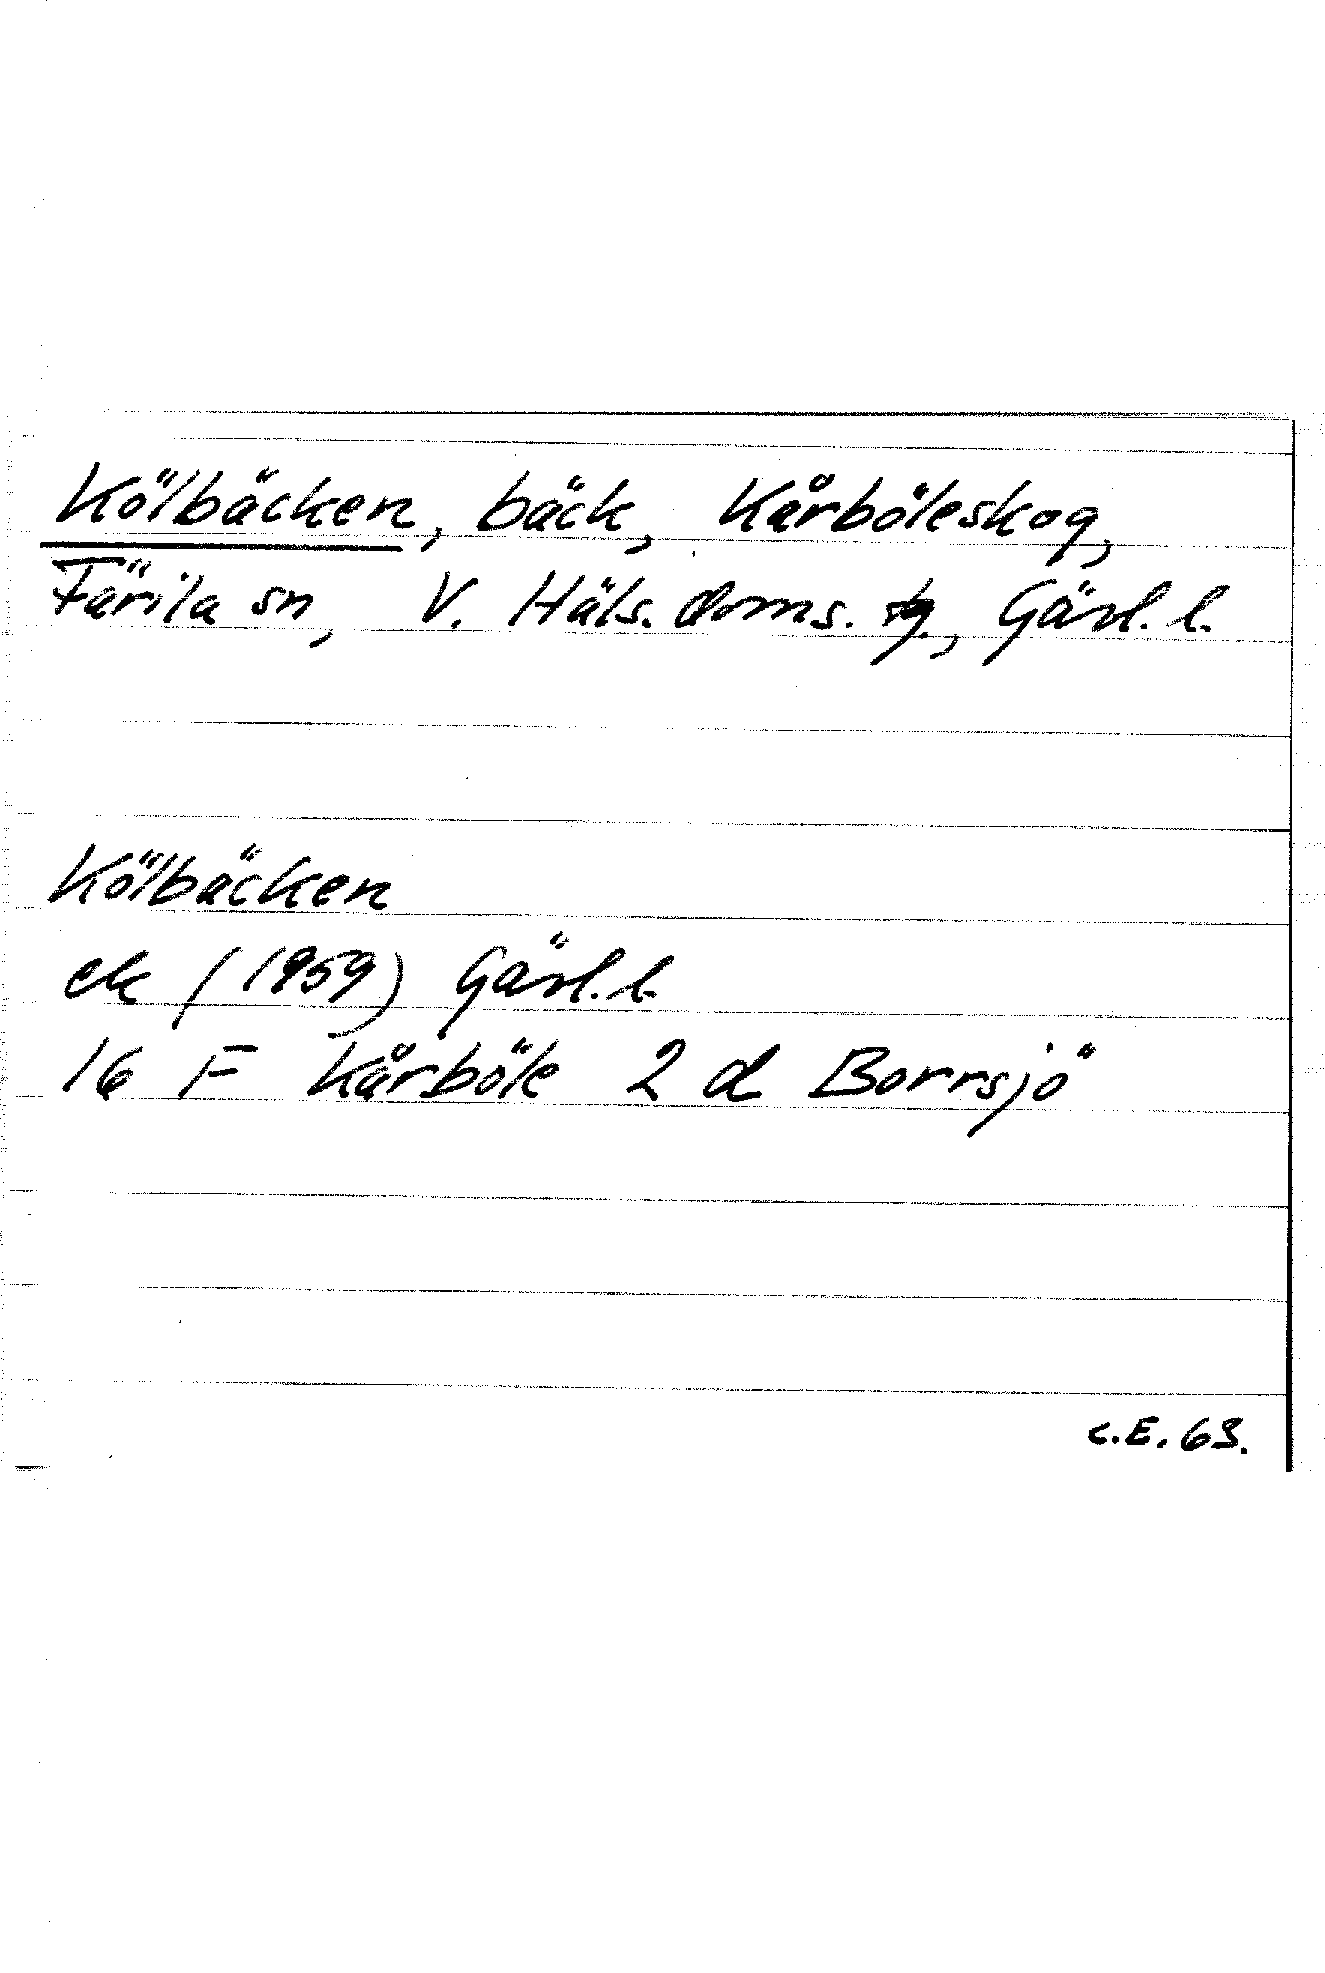 Kölbäcken, bäck, Kårböleskog,
Färila sn, V. Häls. doms. tg., Gävl. l.
Kölbäcken
ek (1959) Gävl. l.
16 F Kårböle 2 d Borrsjö
C.E. 63.